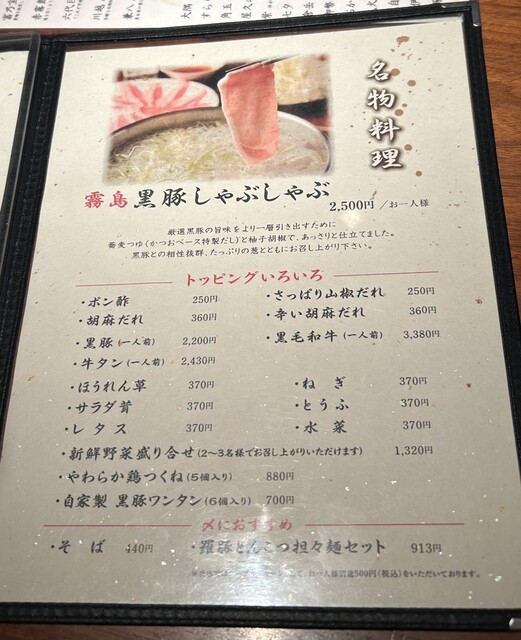 名物料理
霧島 黒豚しゃぶしゃぶ 2,500円 / お一人様
厳選黒豚の旨味をより一層引き出すために
蕎麦つゆ(かつおベース特製だし)と柚子胡椒で、あっさりと仕立てました。
黒豚との相性抜群、たっぷりの葱とともにお召し上がり下さい。
トッピングいろいろ
・ポン酢 250円 ・さっぱり山椒だれ 250円
・胡麻だれ 360円 ・辛い胡麻だれ 360円
・黒豚(一人前) 2,200円 ・黒毛和牛(一人前) 3,380円
・牛タン(一人前) 2,430円
・ほうれん草 370円 ・ねぎ 370円
・サラダ茸 370円 ・とうふ 370円
・レタス 370円 ・水菜 370円
・新鮮野菜盛り合せ(2〜3名様でお召し上がりいただけます) 1,320円
・やわらか鶏つくね(5個入り) 880円
・自家製 黒豚ワンタン(6個入り) 700円
〆におすすめ
・そば 440円 ・羅豚とんこつ担々麺セット 913円
お一人様別途500円(税込)をいただいております。